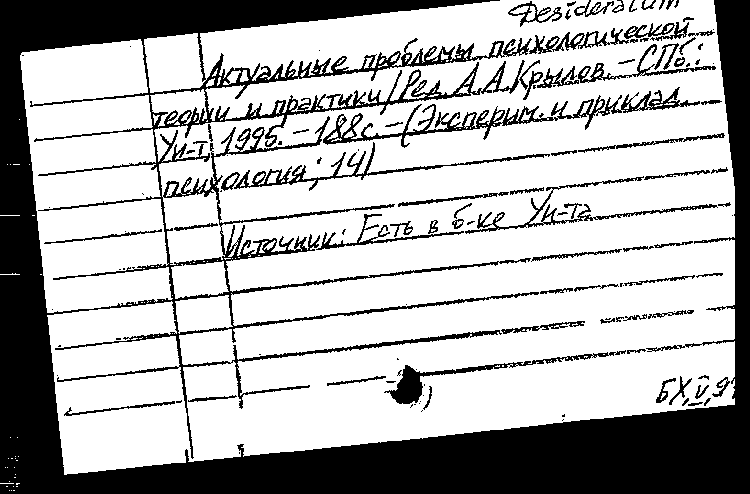 Desideratum
Актуальные проблемы психологической
теории и практики/Ред. А.А.Крылов. – СПб.:
Ун-т, 1995. – 188с. – (Эксперим. и приклад.
психология; 14)
Источник: Есть в б-ке Ун-та
БХ, V, 9